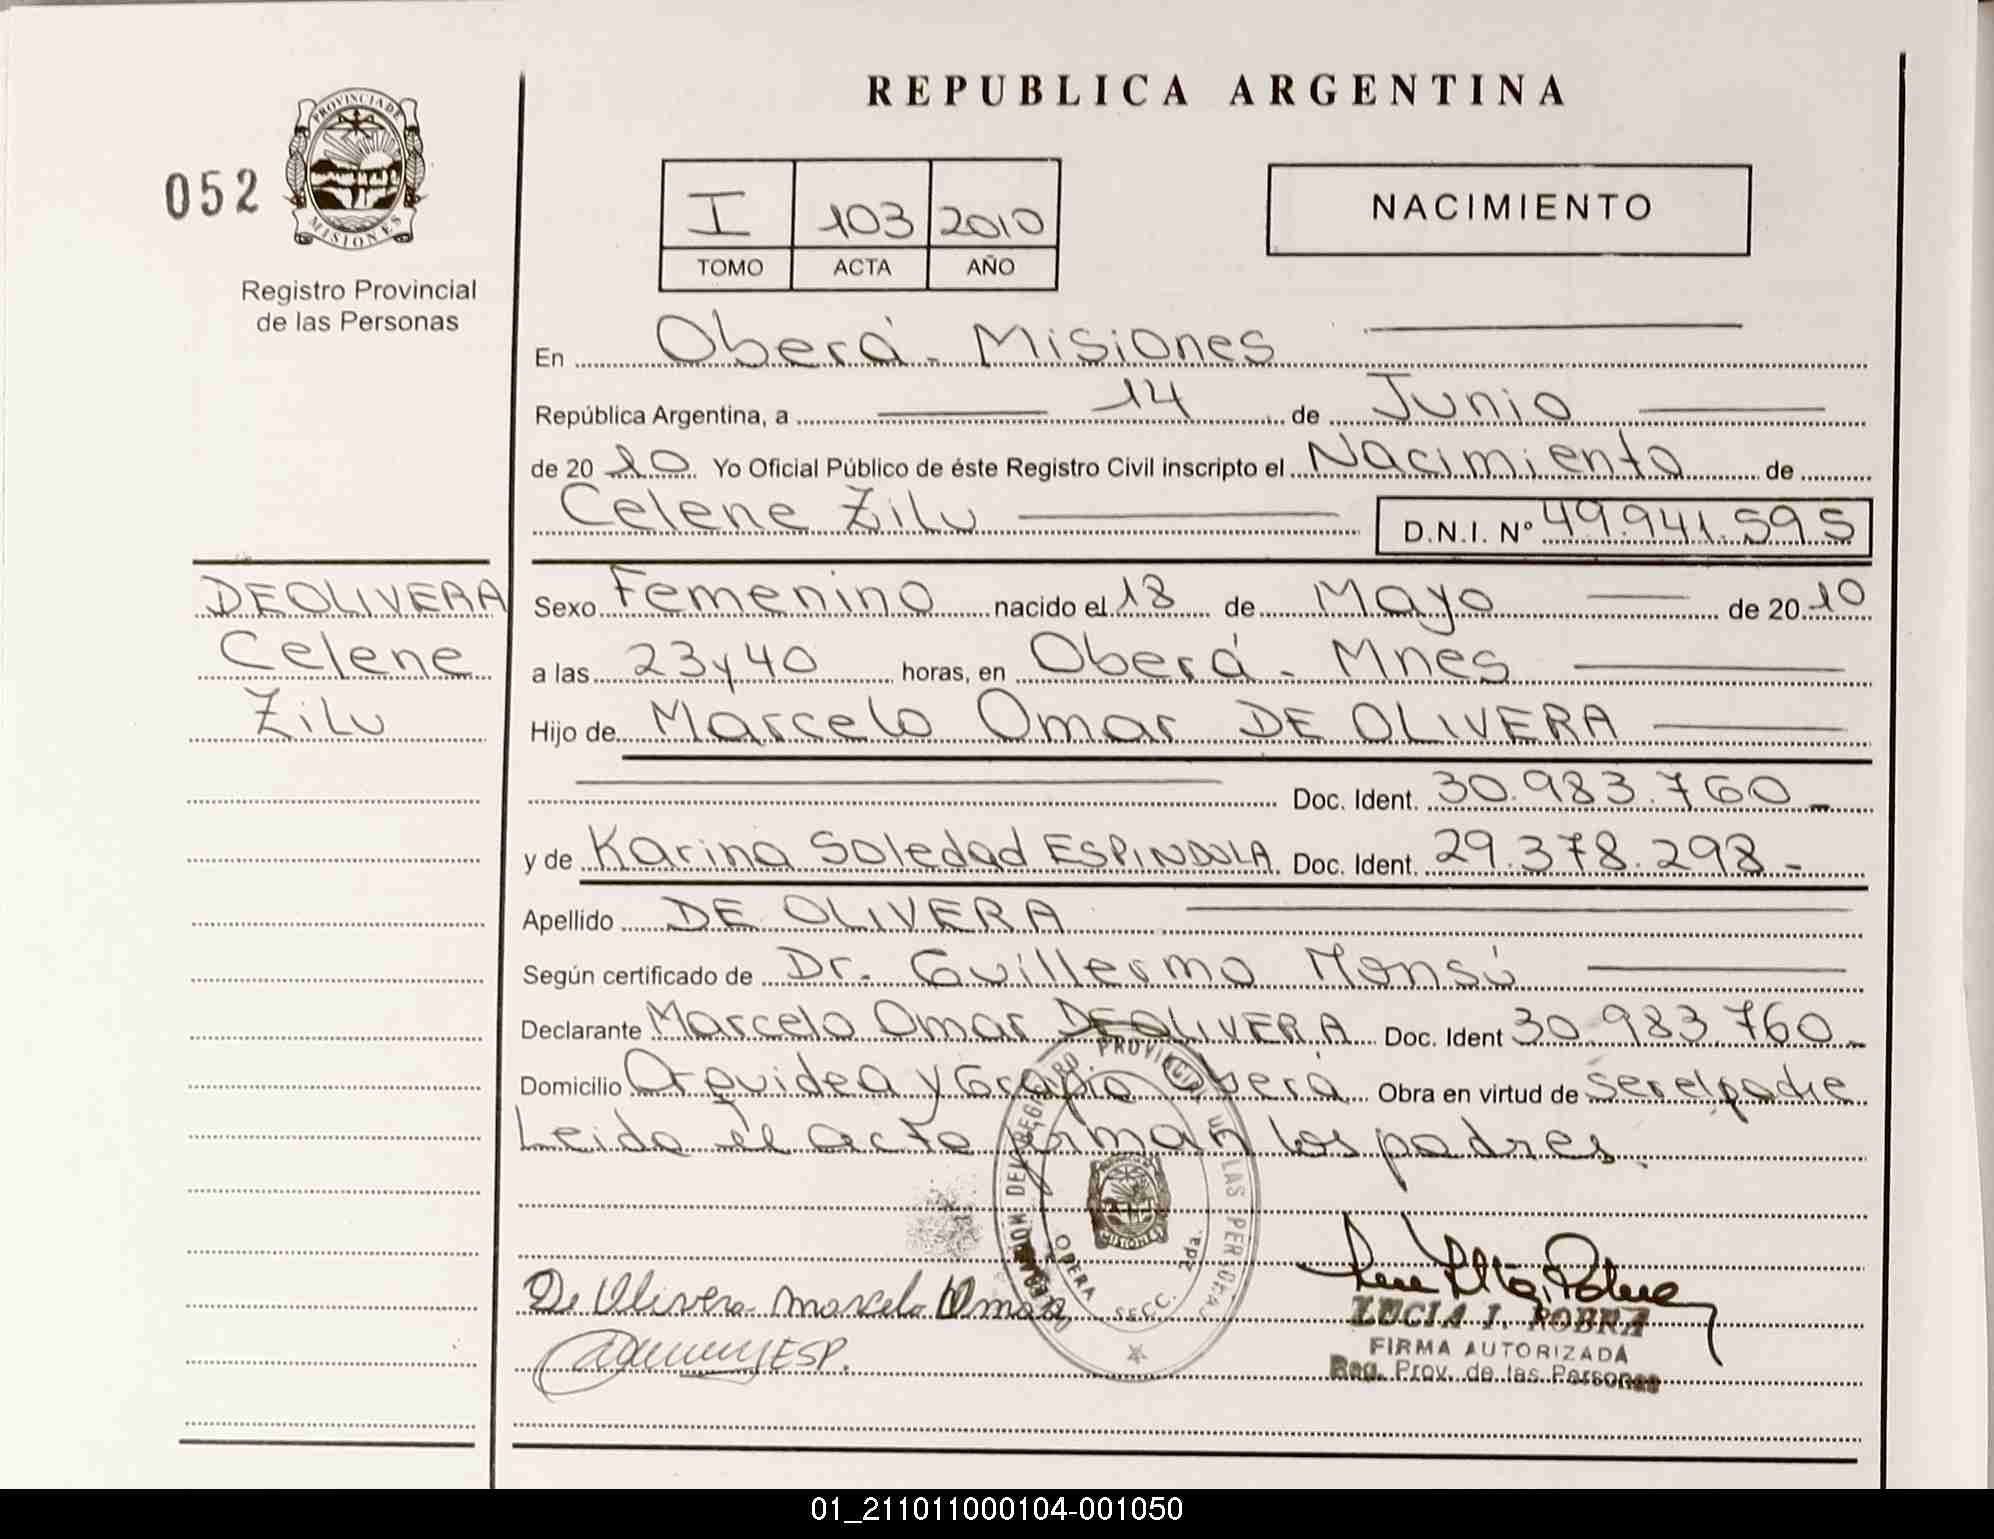 REPUBLICA ARGENTINA
052
PROVINCIA DE
MISIONES
Registro Provincial
de las Personas
I 103 2010
TOMO ACTA AÑO
NACIMIENTO
En Oberá - Misiones
República Argentina, a 14 de Junio
de 2010 Yo Oficial Público de éste Registro Civil inscripto el Nacimiento de
Celene Zilu D.N.I. Nº 49.941.595
DE OLIVERA
Celene
Zilu
Sexo Femenino nacido el 18 de Mayo de 2010
a las 23 y 40 horas, en Oberá - Mnes
Hijo de Marcelo Omar DE OLIVERA
Doc. Ident. 30.983.760 -
y de Karina Soledad ESPINDOLA Doc. Ident. 29.378.298 -
Apellido DE OLIVERA
Según certificado de Dr. Guillermo Monsú
Declarante Marcelo Omar DE OLIVERA Doc. Ident 30.983.760 -
Domicilio Orquidea y Oberá Obra en virtud de ser el padre
Leida el acta firman los padres.
REGISTRO PROVINCIAL DE LAS PERSONAS
OBERA SECC. 2da.
MISIONES
De Olivera Marcelo Omar
ESP.
LUCIA I. ROBRA
FIRMA AUTORIZADA
Reg. Prov. de las Personas
01_211011000104-001050